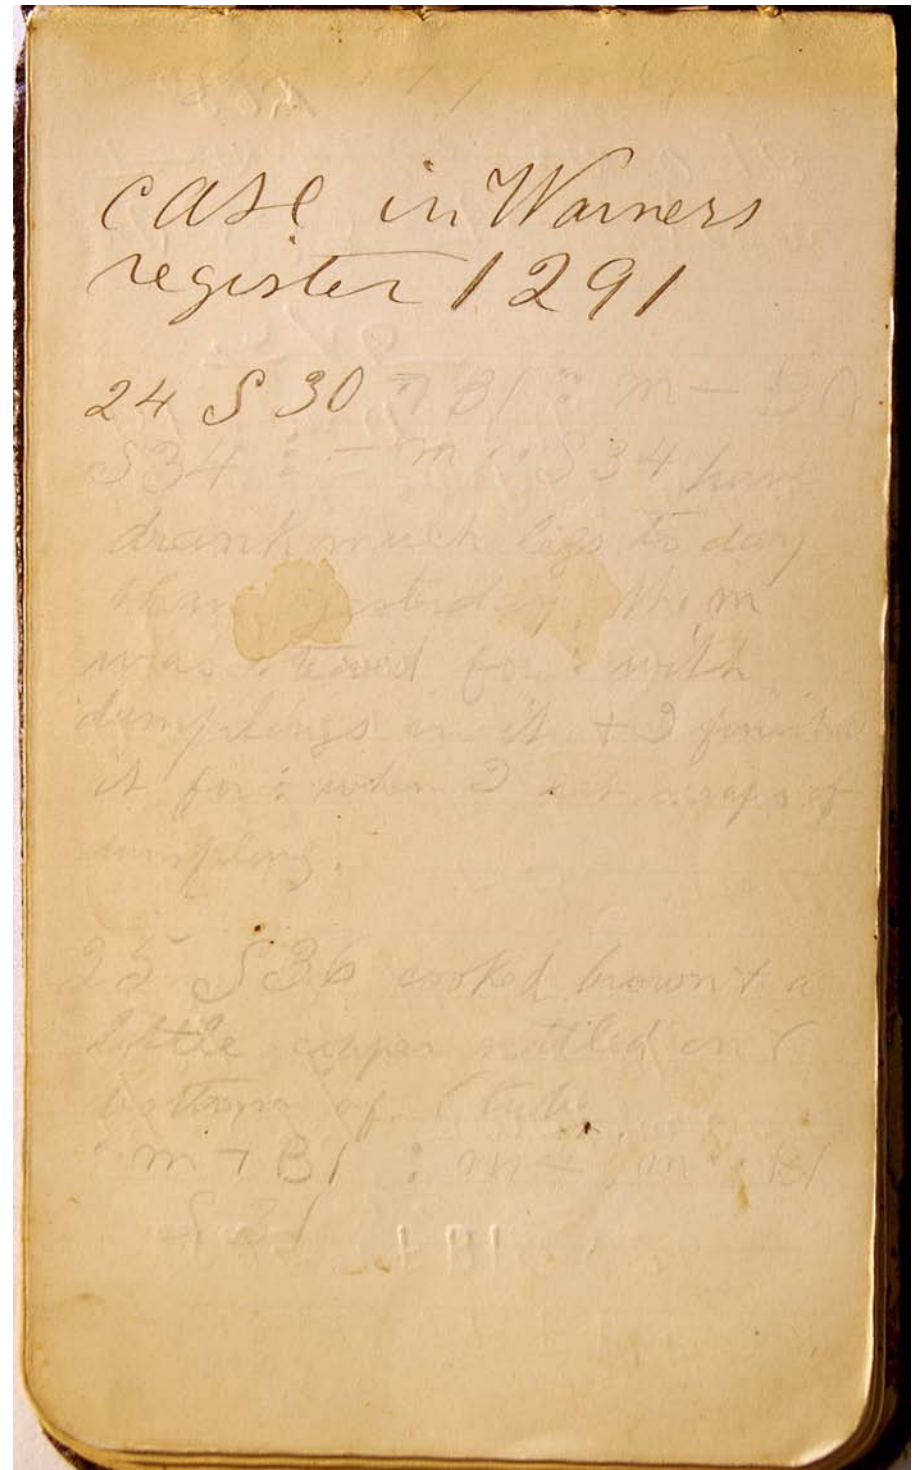 case in Warners
register 1291
24 S 30 7 B1 : m –
S34 : – m S34 have
drank much less to day
than yesterday. the m
was stewed for : with
dumplings in it + I finished
it for : when I scraps of
dumpling.
25 S36 cooked brown + a
little copper settled on (
bottom of ( tube
m 7 B1 : m – m B1